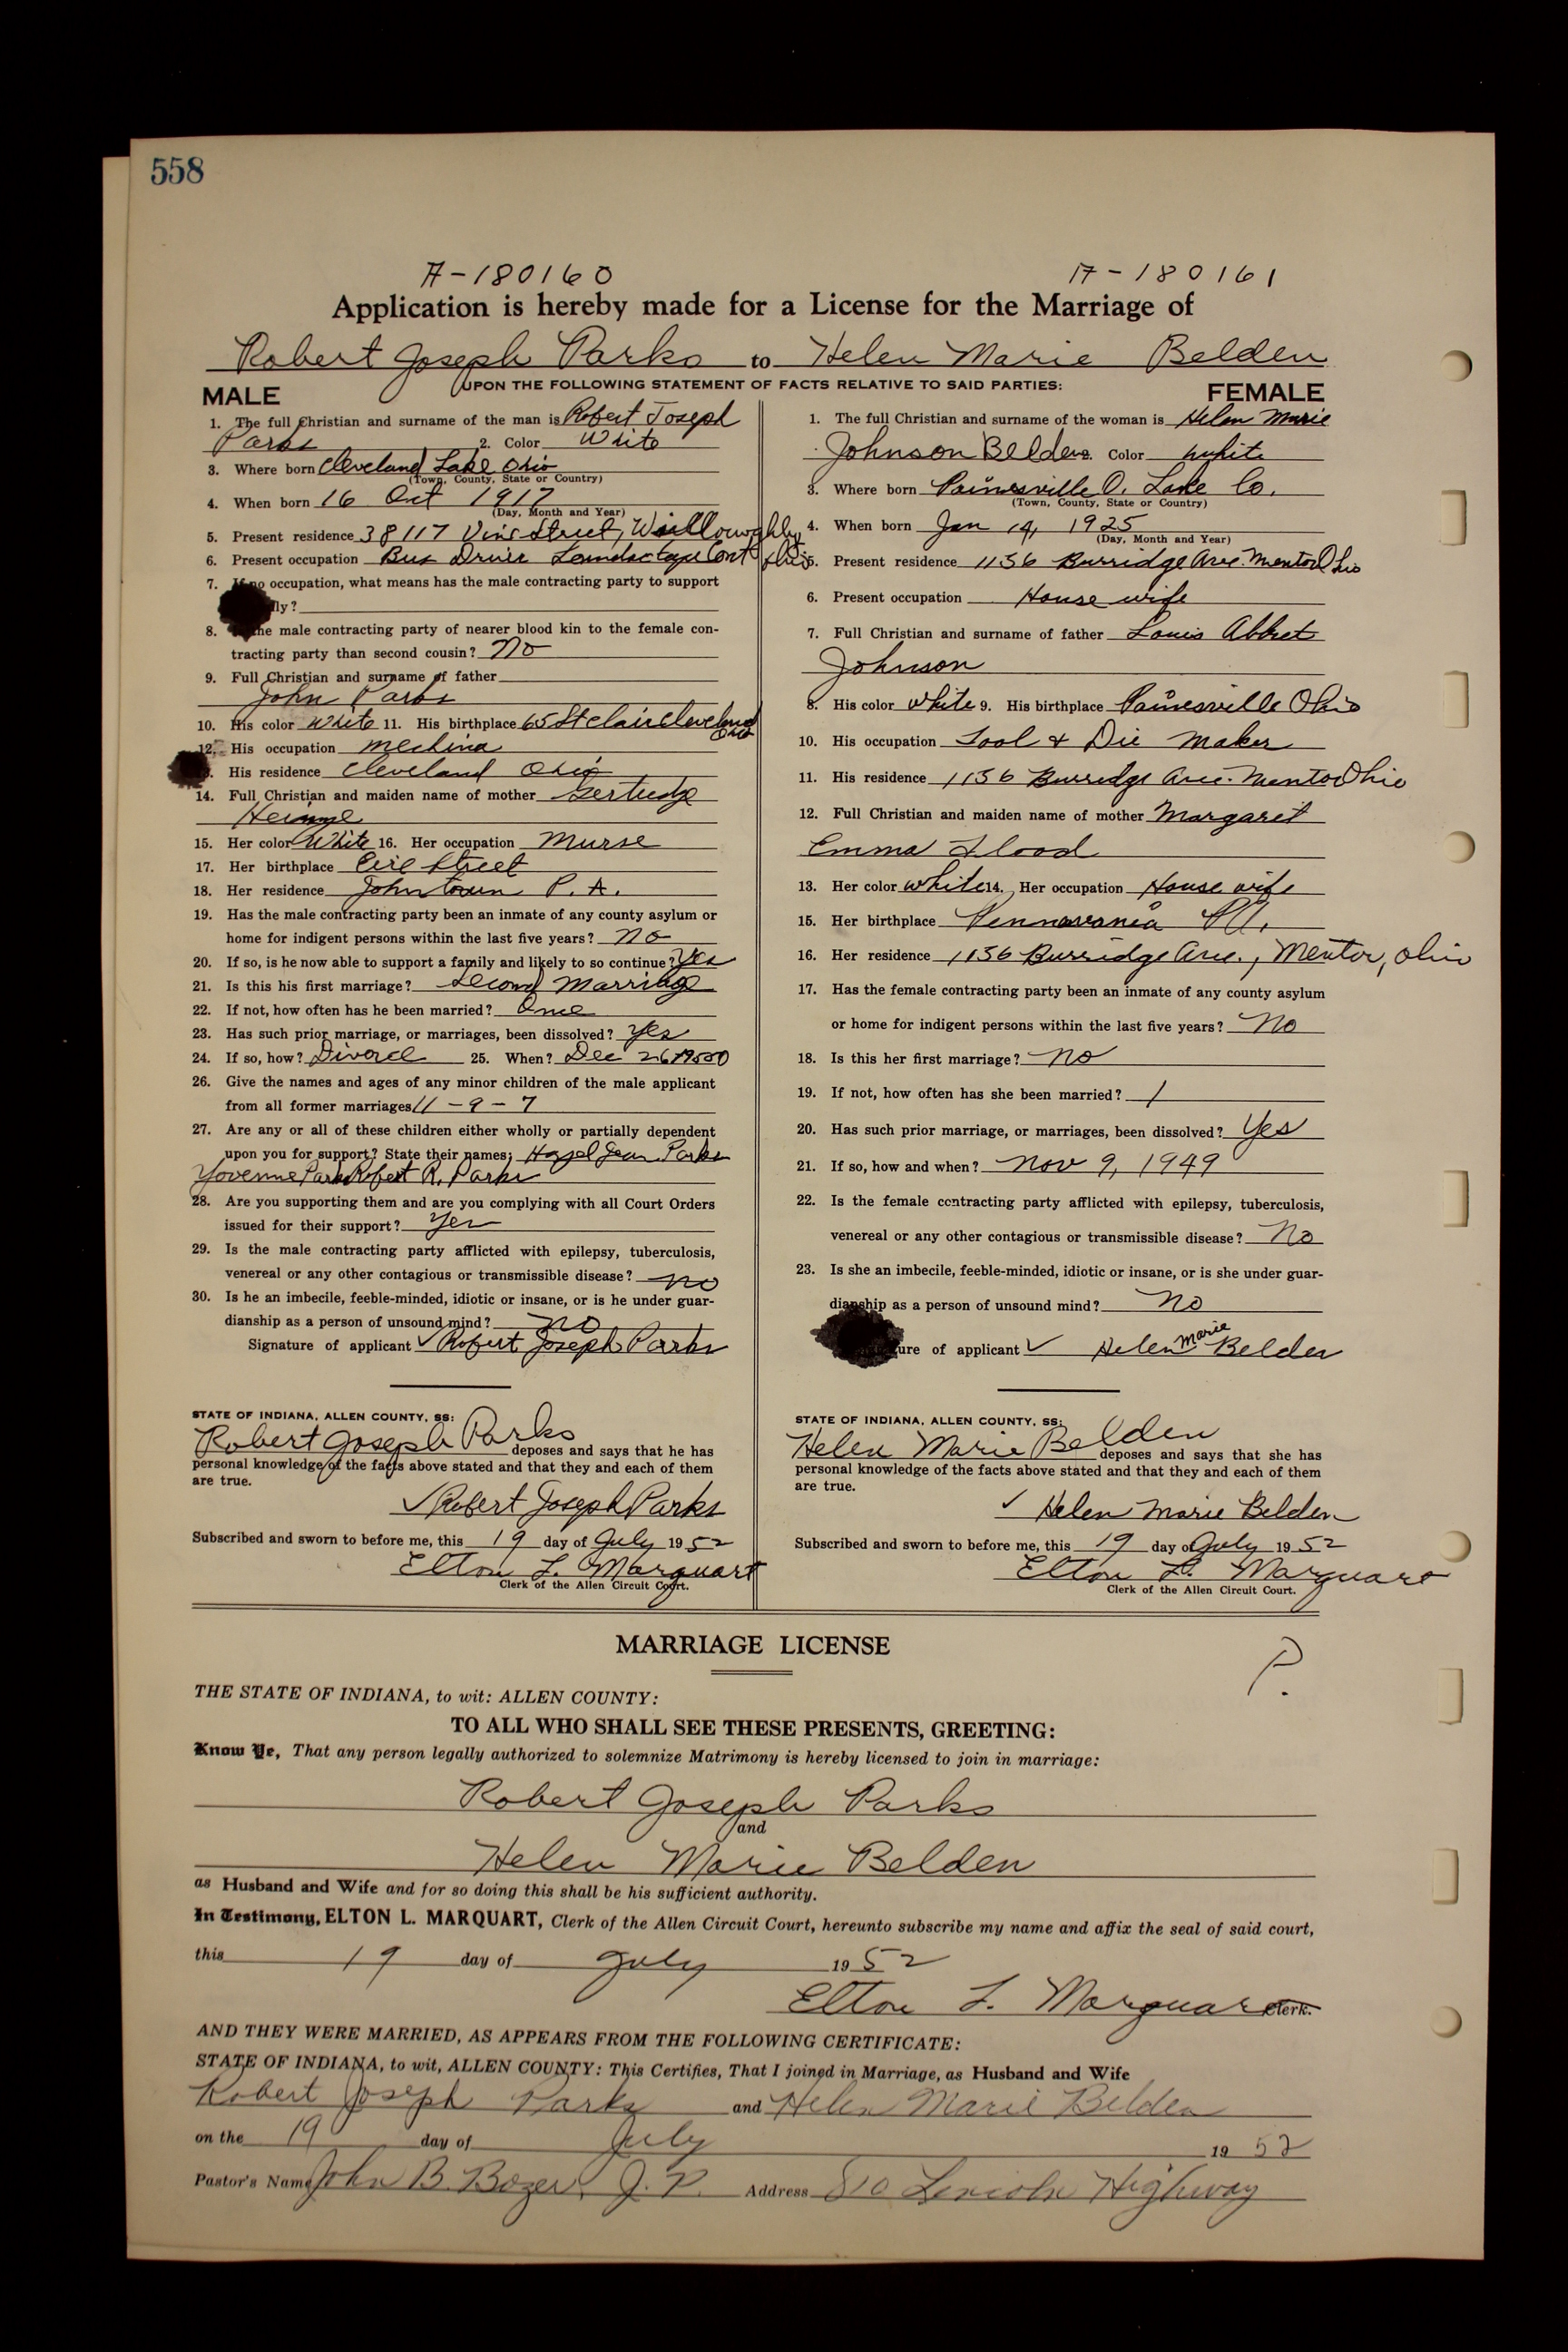 558
A-180160 A-180161
Application is hereby made for a License for the Marriage of
Robert Joseph Parks to Helen Marie Belden
UPON THE FOLLOWING STATEMENT OF FACTS RELATIVE TO SAID PARTIES:
MALE
1. The full Christian and surname of the man is Robert Joseph
Parks 2. Color White
3. Where born Cleveland Lake Ohio
(Town, County, State or Country)
4. When born 16 Oct 1917
(Day, Month and Year)
5. Present residence 38117 Vine Street, Willoughby
6. Present occupation Bus Driver Ohio
7. If no occupation, what means has the male contracting party to support
ly?
8. the male contracting party of nearer blood kin to the female con-
tracting party than second cousin? No
9. Full Christian and surname of father
John Parks
10. His color White 11. His birthplace 65 St Clair Cleveland
Ohio
12. His occupation
His residence Cleveland Ohio
14. Full Christian and maiden name of mother
15. Her color White 16. Her occupation Nurse
17. Her birthplace Street
18. Her residence Johntown P.A.
19. Has the male contracting party been an inmate of any county asylum or
home for indigent persons within the last five years? No
20. If so, is he now able to support a family and likely to so continue? Yes
21. Is this his first marriage? Second Marriage
22. If not, how often has he been married? Once
23. Has such prior marriage, or marriages, been dissolved? Yes
24. If so, how? Divorce 25. When? Dec
26. Give the names and ages of any minor children of the male applicant
from all former marriages 11 - 9 - 7
27. Are any or all of these children either wholly or partially dependent
upon you for support? State their names: Hazel Jean Parks
Parks Robert R. Parks
28. Are you supporting them and are you complying with all Court Orders
issued for their support? Yes
29. Is the male contracting party afflicted with epilepsy, tuberculosis,
venereal or any other contagious or transmissible disease? No
30. Is he an imbecile, feeble-minded, idiotic or insane, or is he under guar-
dianship as a person of unsound mind? No
Signature of applicant ✓ Robert Joseph Parks
STATE OF INDIANA, ALLEN COUNTY, SS:
Robert Joseph Parks deposes and says that he has
personal knowledge of the facts above stated and that they and each of them
are true.
✓ Robert Joseph Parks
Subscribed and sworn to before me, this 19 day of July 1952
Elton L. Marquart
Clerk of the Allen Circuit Court.
FEMALE
1. The full Christian and surname of the woman is Helen Marie
Johnson Belden 2. Color white
3. Where born Painesville O. Lake Co.
(Town, County, State or Country)
4. When born Jan 14, 1925
(Day, Month and Year)
5. Present residence 1156 Burridge Ave. Mentor Ohio
6. Present occupation House wife
7. Full Christian and surname of father Louis
Johnson
8. His color white 9. His birthplace Painesville Ohio
10. His occupation Tool & Die Maker
11. His residence 1156 Burridge Ave. Mentor Ohio
12. Full Christian and maiden name of mother Margaret
Emma Flood
13. Her color white 14. Her occupation House wife
15. Her birthplace PA.
16. Her residence 1156 Burridge Ave., Mentor, Ohio
17. Has the female contracting party been an inmate of any county asylum
or home for indigent persons within the last five years? No
18. Is this her first marriage? No
19. If not, how often has she been married? 1
20. Has such prior marriage, or marriages, been dissolved? Yes
21. If so, how and when? Nov 9, 1949
22. Is the female contracting party afflicted with epilepsy, tuberculosis,
venereal or any other contagious or transmissible disease? No
23. Is she an imbecile, feeble-minded, idiotic or insane, or is she under guar-
dianship as a person of unsound mind? No
ure of applicant ✓ Helen Marie Belden
STATE OF INDIANA, ALLEN COUNTY, SS:
Helen Marie Belden deposes and says that she has
personal knowledge of the facts above stated and that they and each of them
are true.
✓ Helen Marie Belden
Subscribed and sworn to before me, this 19 day of July 1952
Elton L. Marquart
Clerk of the Allen Circuit Court.
MARRIAGE LICENSE
P.
THE STATE OF INDIANA, to wit: ALLEN COUNTY:
TO ALL WHO SHALL SEE THESE PRESENTS, GREETING:
Know Ye, That any person legally authorized to solemnize Matrimony is hereby licensed to join in marriage:
Robert Joseph Parks
and
Helen Marie Belden
as Husband and Wife and for so doing this shall be his sufficient authority.
In Testimony, ELTON L. MARQUART, Clerk of the Allen Circuit Court, hereunto subscribe my name and affix the seal of said court,
this 19 day of July 1952
Elton L. Marquart Clerk.
AND THEY WERE MARRIED, AS APPEARS FROM THE FOLLOWING CERTIFICATE:
STATE OF INDIANA, to wit, ALLEN COUNTY: This Certifies, That I joined in Marriage, as Husband and Wife
Robert Joseph Parks and Helen Marie Belden
on the 19 day of July 1952
Pastor's Name John B. Bozer, J.P. Address 810 Lincoln Highway